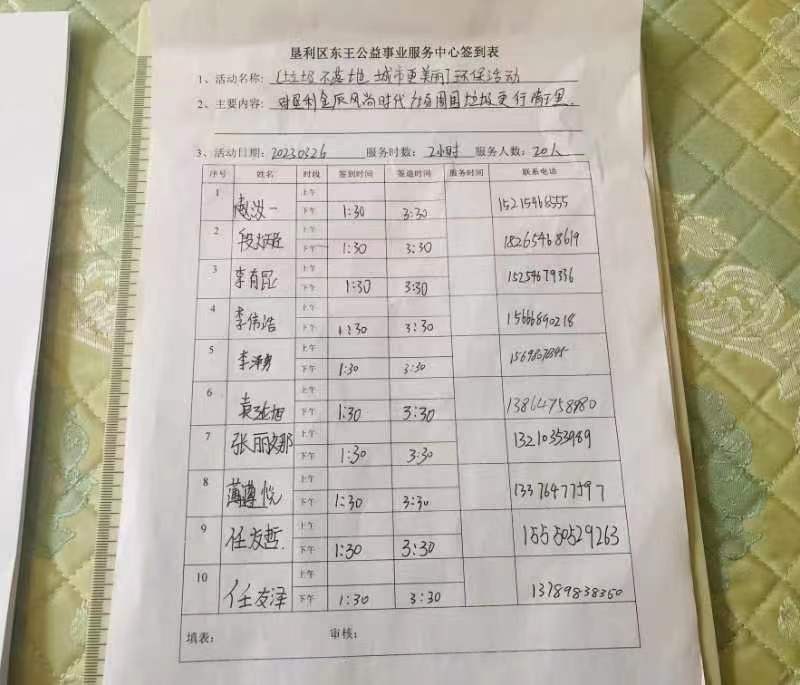 垦利区东王公益事业服务中心签到表
1、活动名称: 垃圾不落地 城市更美丽 环保活动
2、主要内容: 对垦利金辰风尚时代 周围垃圾进行清理.
3、活动日期: 20230326 服务时数: 2小时 服务人数: 20人
序号 姓名 时段 签到时间 签退时间 服务时间 联系电话
1 上午
下午 1:30 3:30 15215468555
2 上午
下午 1:30 3:30 18265468619
3 李育昆 上午
下午 1:30 3:30 15254679336
4 李伟浩 上午
下午 1:30 3:30 15666890218
5 上午
下午 1:30 3:30
6 上午
下午 1:30 3:30 13864758980
7 张丽娜 上午
下午 1:30 3:30 13210353989
8 薄遵悦 上午
下午 1:30 3:30 13376477597
9 任友哲 上午
下午 1:30 3:30 15550529263
10 任友泽 上午
下午 1:30 3:30 13789838360
填表: 审核: